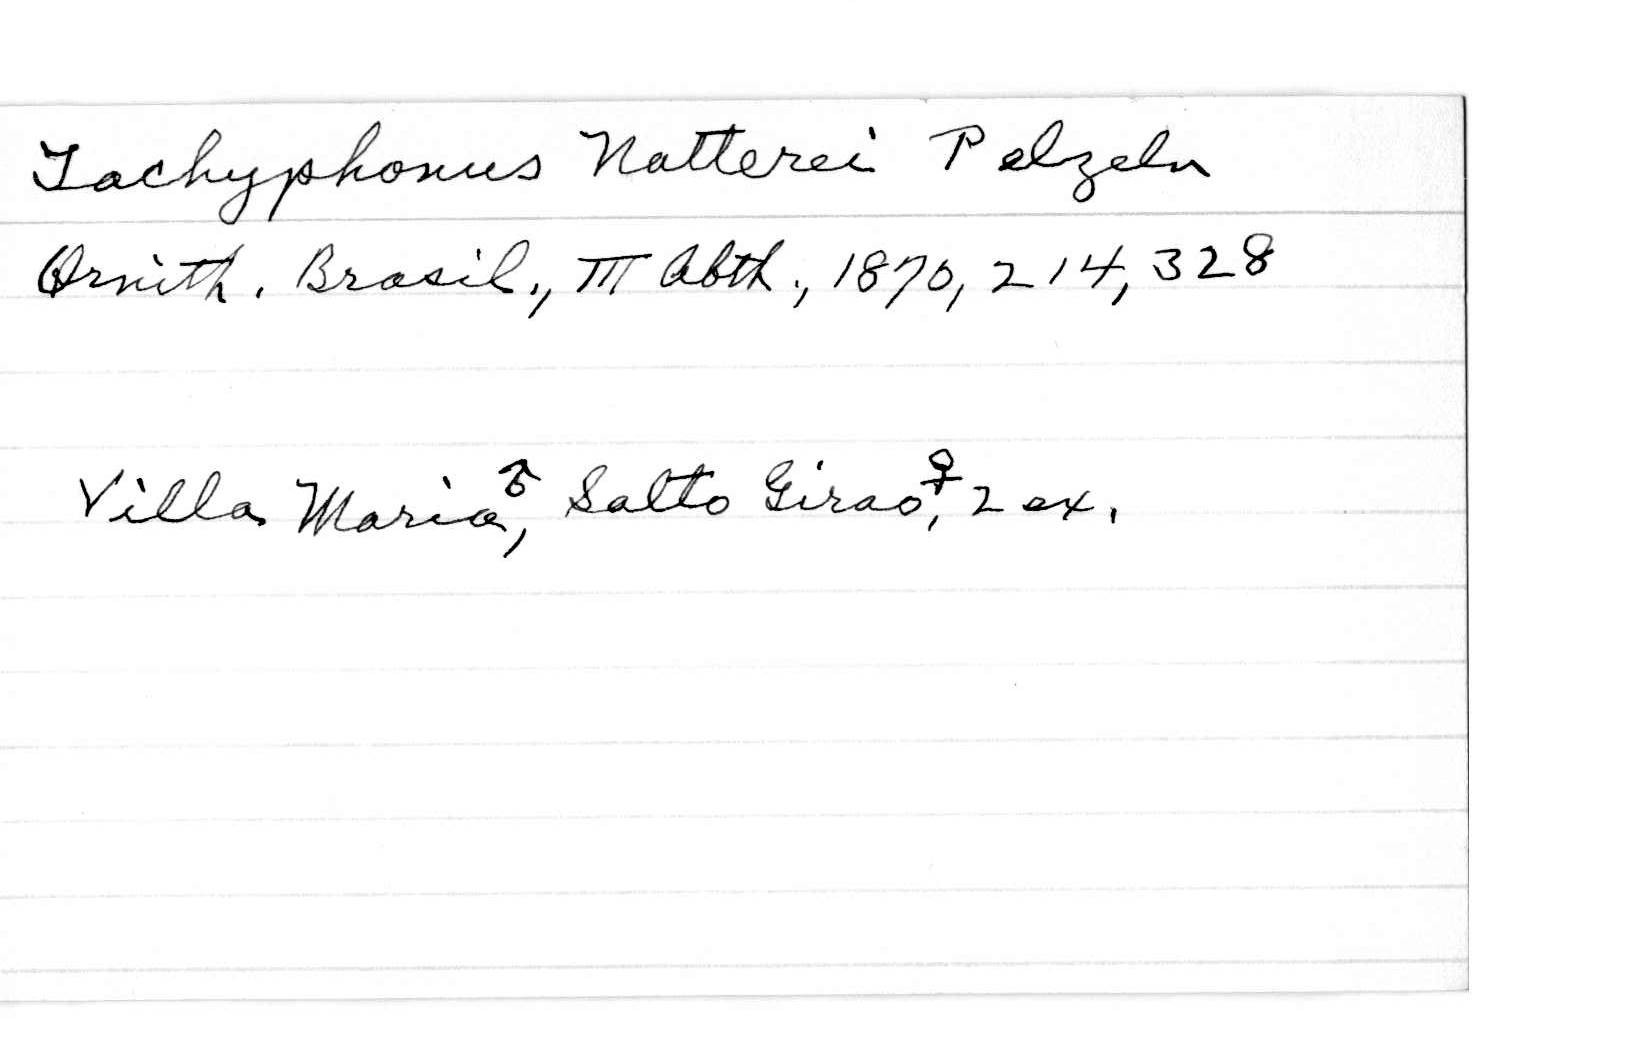 Tachyphonus Nattereri Pelzeln
Ornith. Brasil., III Abth., 1870, 214, 328
Villa Maria ♂, Salto Girao ♀, 2 ex.